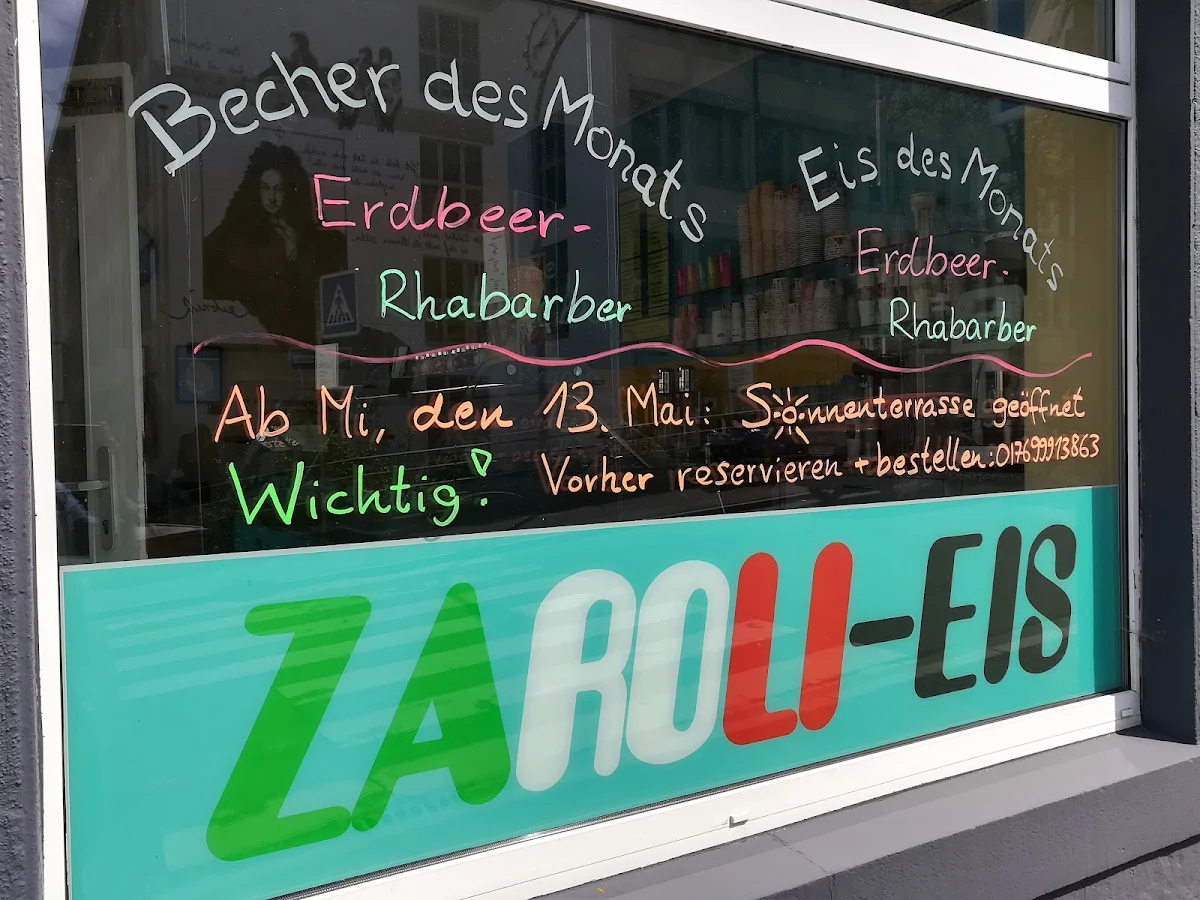 Becher des Monats
Erdbeer-
Rhabarber
Eis des Monats
Erdbeer-
Rhabarber
Ab Mi, den 13. Mai: Sonnenterrasse geöffnet
Wichtig! Vorher reservieren + bestellen: 017699913863
ZAROLI-EIS